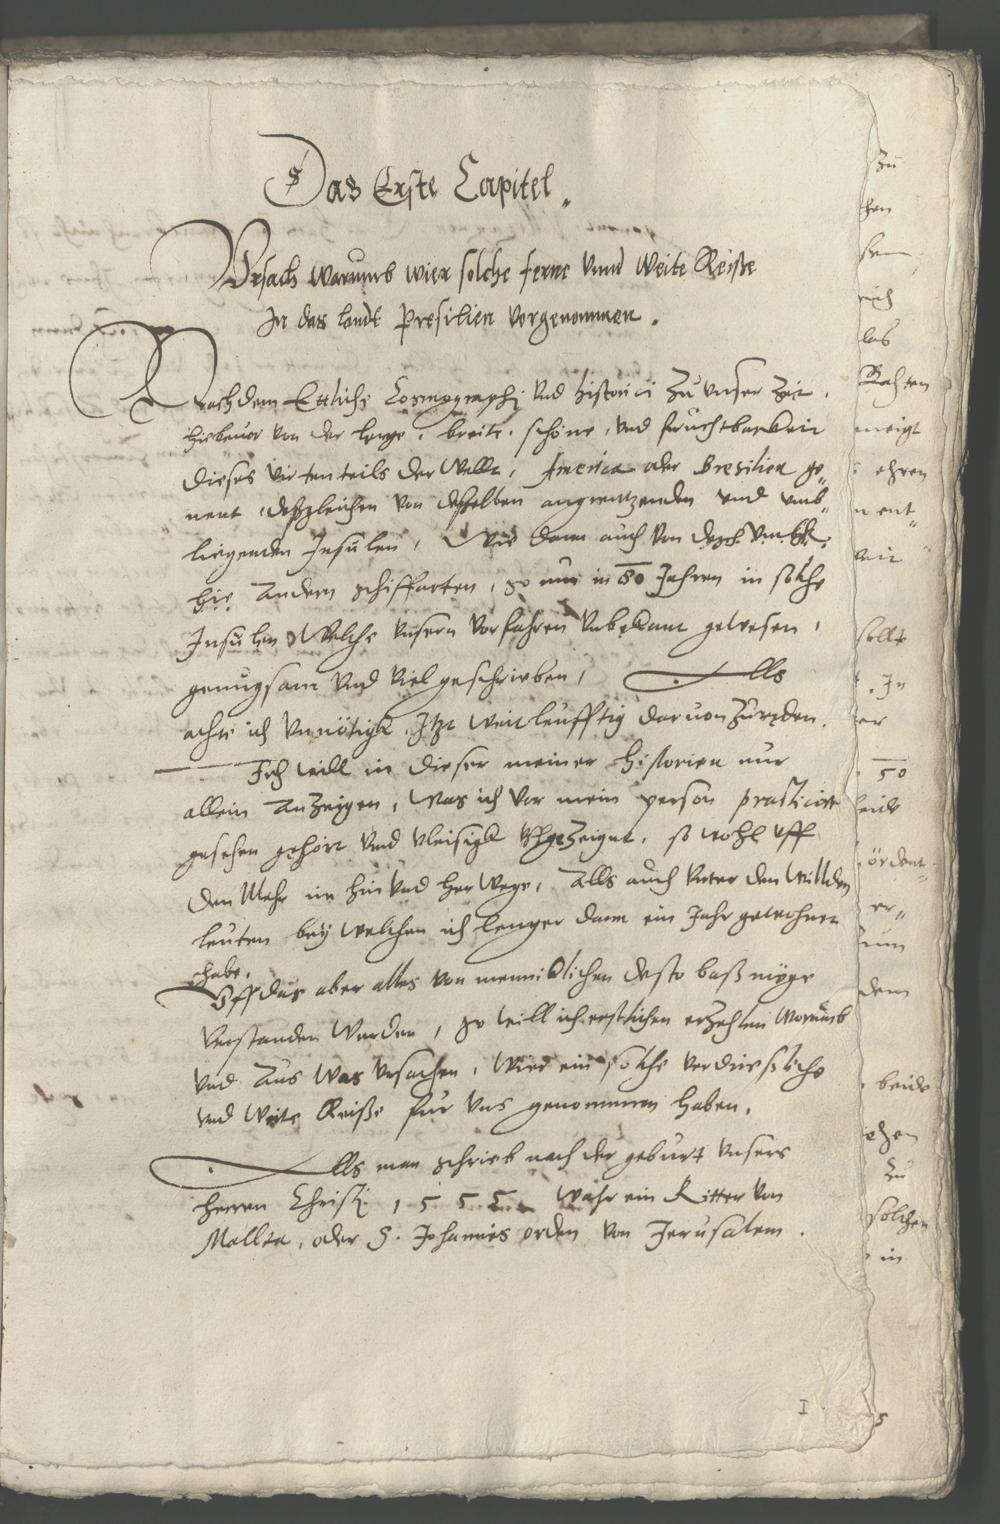 Das Erste Capitel„
Vrsach warumb wier solche ferne vnnd weite Reiße
In das landt Presilien vorgenommen.
Nach dem Ettliche Cosmographi vnd historici zu vnser zeit.
hiebeuor von der lenge, breite, schöne, vnd fruchtbarkeit
dieses virten teils der Wellt, America oder Bresilien ge„
nent, deßgleichen von desselben angrentzenden vnd vmb„
liegenden Insulen, Wie dann auch von
hie andern schiffarten, so nur in 80 Jahren in solche
Insulen Welche vnsern vorfahren vnbekant gewesen,
genugsam vnd viel geschrieben, Alls
achte ich vnnötigk Itzt weitleufftig daruon zureden.
Ich will in dieser meiner Historien nur
allein anzeigen, Was ich vor mein person practicirt
gesehen gehört vnd vleisigk vffgezeignet, so wohl vff
den Mehr im hin vnd her Wege, Alls auch vnter den Willden
leuten bey welchen ich lenger dann ein Jahr gewohnet
habe.
Vff das aber alles von menniklichen desto baß möge
verstanden werden, so will ich erstlichen erzehlen Worumb
vnd aus was vrsachen, Wier ein solche verdrießliche
vnd Weite Reiße fur vns genommen haben.
Alls man schrieb nach der geburt vnsers
herren Christi 1555. Wahr ein Ritter von
Mallta, oder S. Johannes orden von Jerusalem.
zu
hen
rich
das
Rahten
meigt
ehren
n ent„
sollt
. In
er
50
beide
ördent„
er„
zum
dem
beide
zu
solchen
in
I
5